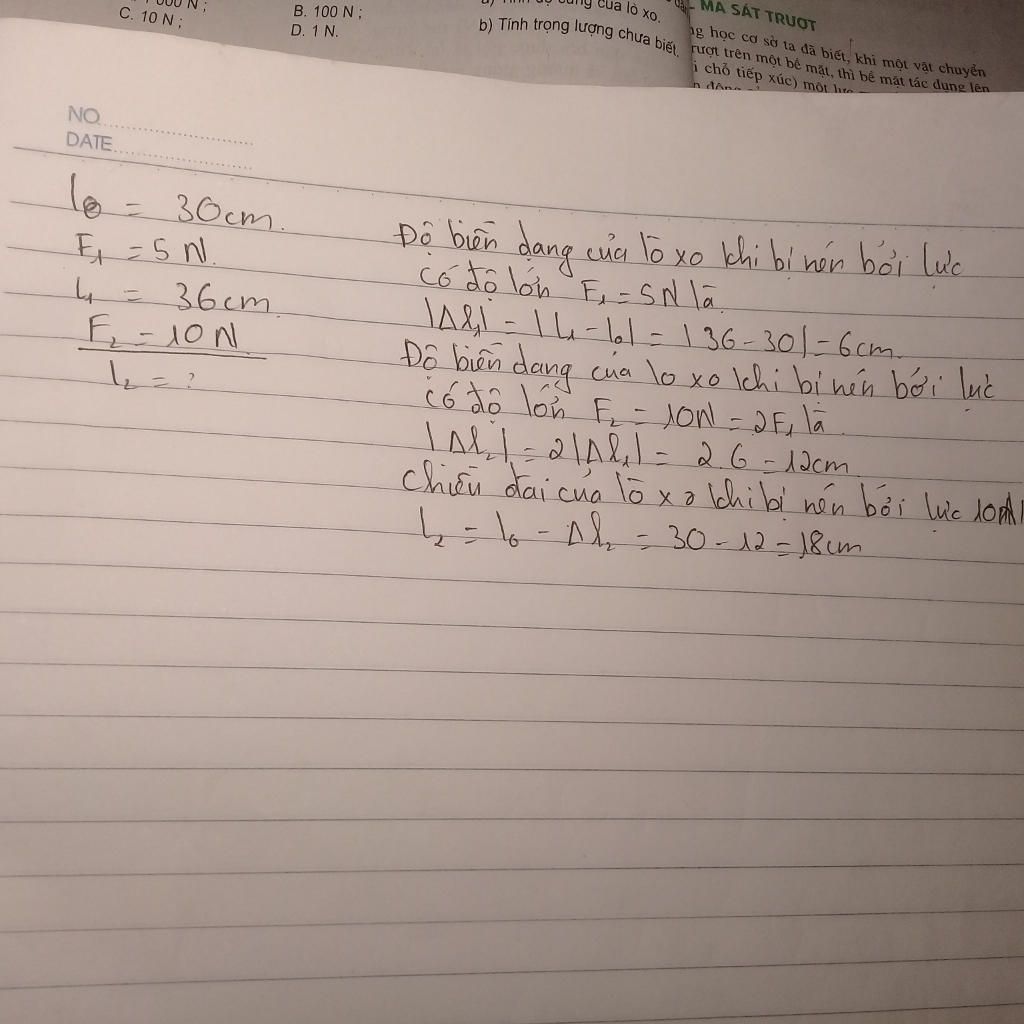 C. 10 N ;
B. 100 N ;
D. 1 N.
của lò xo.
b) Tính trọng lượng chưa biết.
MA SÁT TRƯỢT
học cơ sở ta đã biết, khi một vật chuyển
trượt trên một bề mặt, thì bề mặt tác dụng lên
chỗ tiếp xúc) một
NO
DATE
l0 = 30cm.
F1 = 5 N.
l1 = 36cm.
F2 = 10 N
l2 = ?
Độ biến dạng của lò xo khi bị nén bởi lực
có độ lớn F1 = 5N là
|Δl1| = |l1 - l0| = |36 - 30| = 6cm.
Độ biến dạng của lo xo khi bị nén bởi lực
có độ lớn F2 = 10N = 2F1 là
|Δl2| = 2|Δl1| = 2.6 = 12cm
Chiều dài của lò xo khi bị nén bởi lực 10N
l2 = l0 - Δl2 = 30 - 12 = 18cm